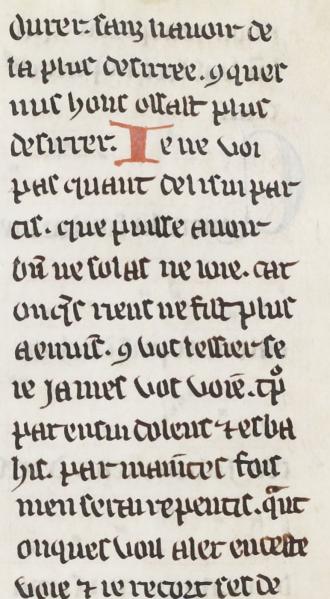 durer. sanz nauoir de
la plus desirree. ꝯques
nus hons osast plus
desirrer. Ie ne voi
pas quant de li sui par
tis. que puisse auoir
bn̄ ne solas ne ioie. car
onq̄s riens ne fist plus
a enuis. ꝯ vos lessier se
ie James vos voie. tp̄
par en sui dolens ⁊ esba
his. par maītes fois
men serai repentis. q̄nt
onques voil aler en ceste
voie ⁊ ie recort ses de